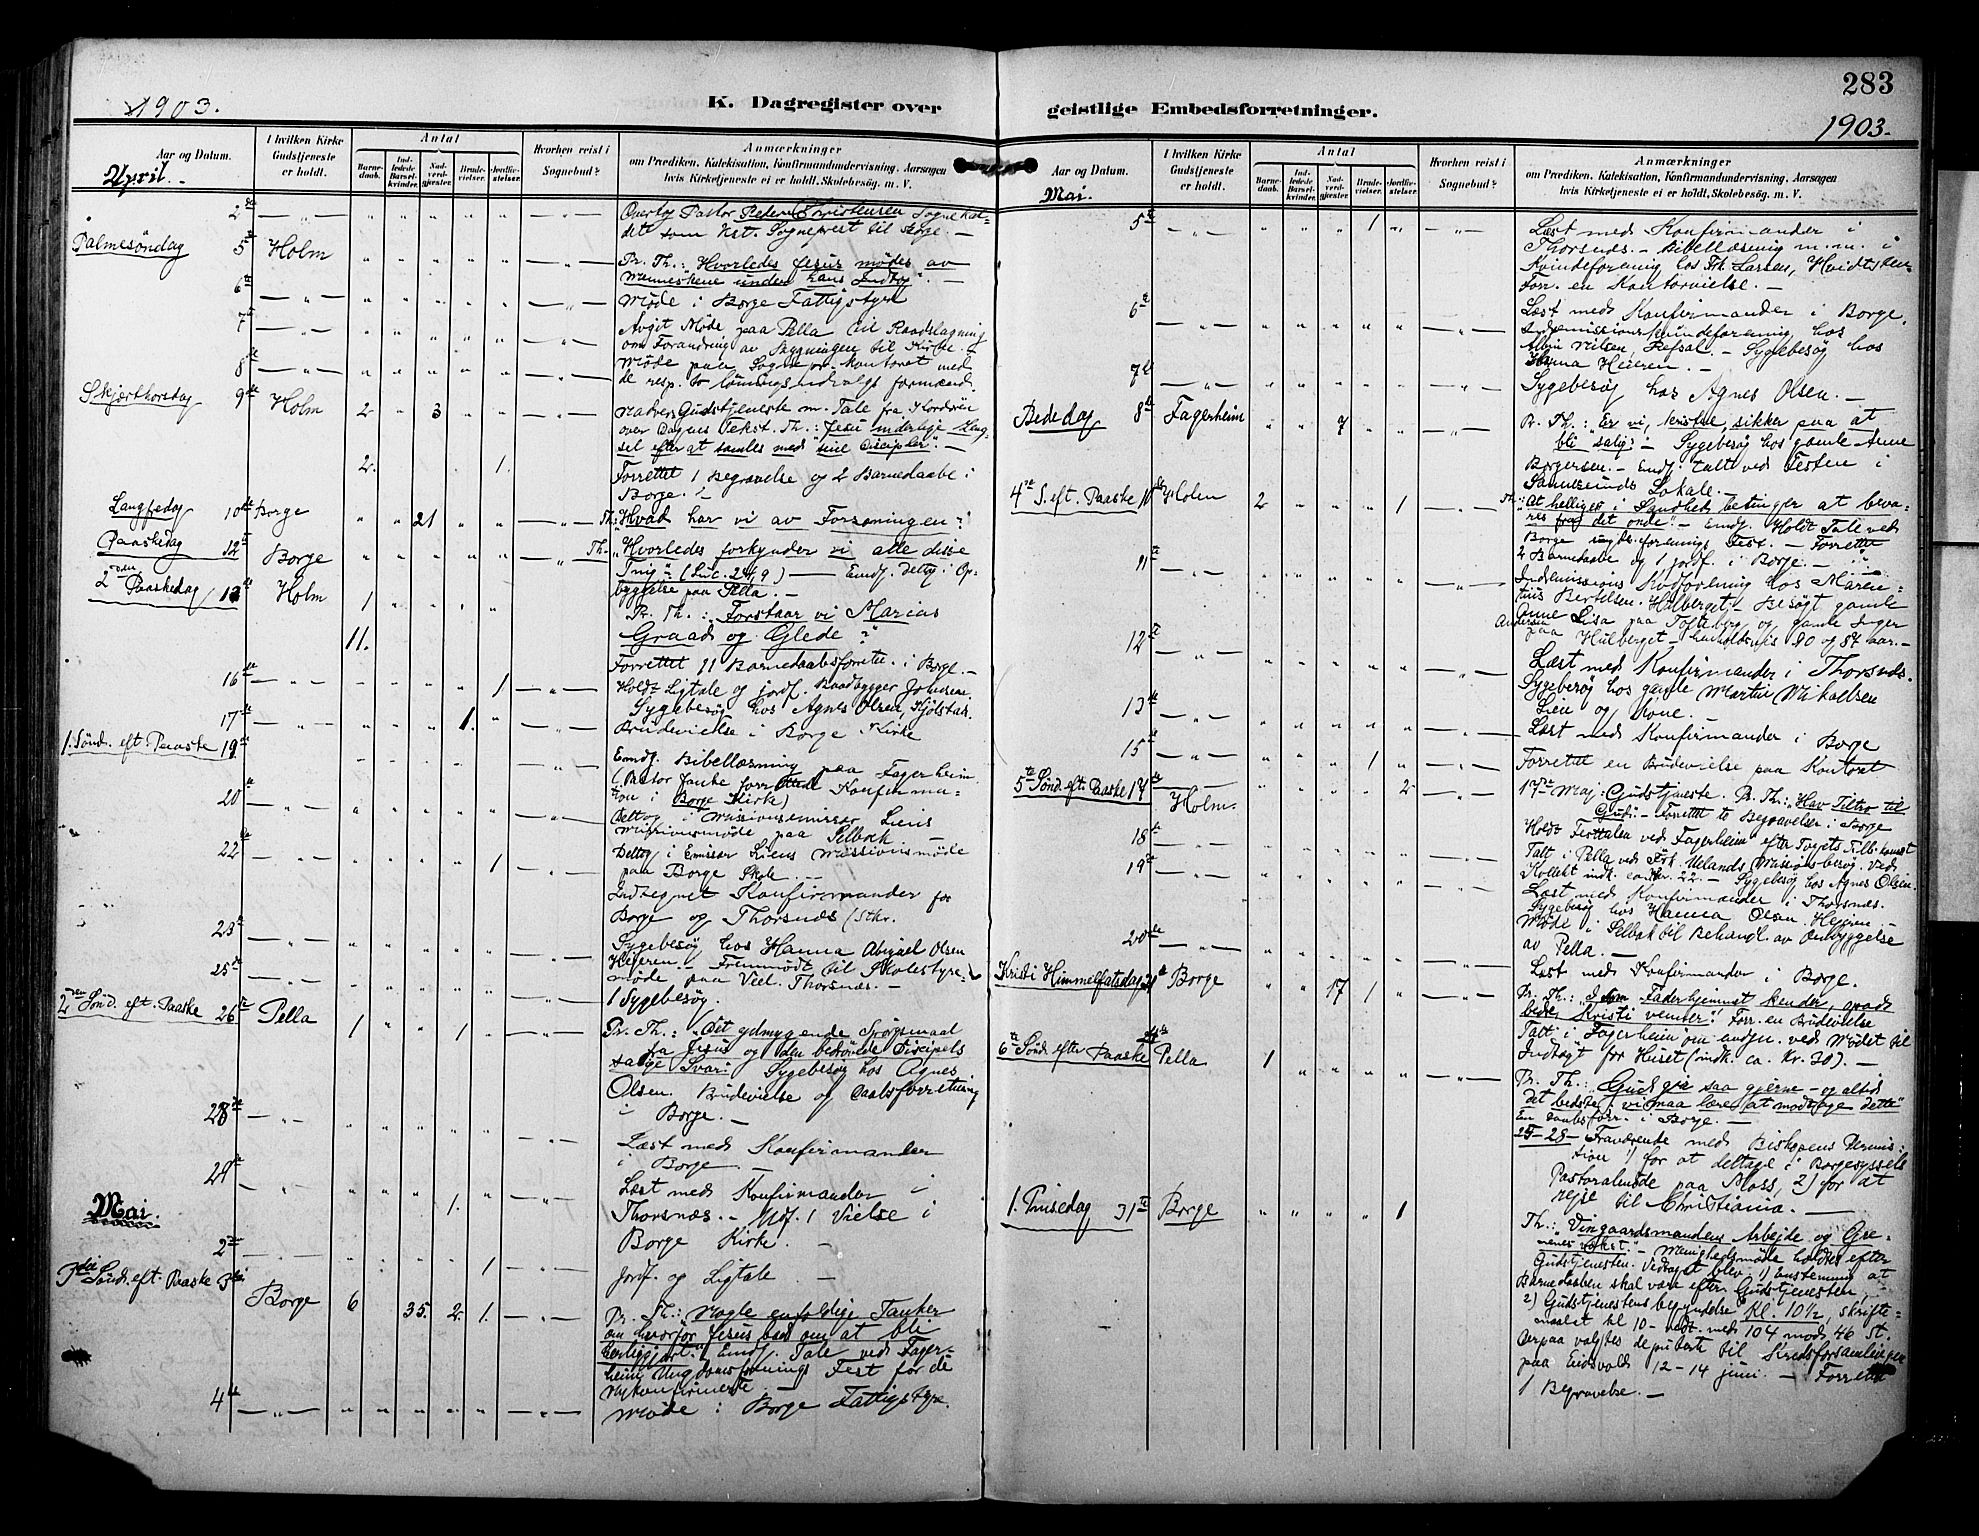 283
1903.
K. Dagregister over
geistlige Embedsforretninger.
1903.
Aar og Datum.
April.
I hvilken Kirke Gudstjeneste er holdt.
Antal
Barnedaab.
Indledede Barselkvinder.
Nadverdgjester.
Brudevielser.
Jordfæstelser.
Hvorhen reist i Sognebud?
Anmærkninger
om Prædiken, Katekisation, Konfirmandundervisning, Aarsagen
hvis Kirketjeneste ei er holdt, Skolebesøg, m. V.
2 Overtog Pastor Peder Christensen Sognekal-
det som kst. Sogneprest til Borge. —
Palmesöndag 5 Holm Pr. Th.: Hvorledes Jesus mödes av
Menneskene under hans Indtog". —
6 Möde i Borge Fattigstyre
7 Avgit Möde paa Pella til Raadslagning
om Forandring av Bygningen til Kirke. —
8 Möde paa Sognepr. kontoret med
de resp. to lönningsudvalgs formænd.
Skjærthorsdag 9 Holm 2 3
over Dagens Tekst. Th.: Jesu inderlige Læng-
sel efter at samles med sine Discipler". —
2. 1. Forrettet 1 Begravelse og 2 Barnedaabe i
Borge. —
Langfredag 10 Borge 21 Th: "Hvad har vi av Forsoningen?"
Paaskedag 12 Borge Th. "Hvorledes forkynder vi alle disse
Ting" (Luc. 24,9) — Emdg. deltog i Op-
byggelse paa Pella. —
2den Paaskedag 13 Holm 1 Pr. Th.: Forstaar vi Marias
Graad og Glede?
11. Forrettet 11 Barnedaabsforrette. i Borge. —
16 1 Holdt Ligtale og jordf. Baadbygger Johnsen.
Sygebesøg hos Agnes Olsen, Kjölstad.
17 1. Brudevielse i Borge Kirke
1. Sönd. eft. Paaske 19 Emdg. Bibellæsning paa Fagerheim
(Pastor Janke forrettede Konfirma-
tion i Borge Kirke)
20 Deltog i Missionsemissær Liens
Missionsmöde paa Selbak —
22 1 Deltog i Emissær Liens Missionsmöde
paa Borge Skole. —
Indtegnet Konfirmander for
Borge og Thorsnæs (Stkr.
23 Sygebesøg hos Hanna Abigael Olsen
Heieren. — Fremmödt til Skolestyre-
möde paa Viel. Thorsnæs. —
25 1 Sygebesøg.
2den Sönd. eft. Paaske 26 Pella 1 1 Pr. Th.: "Det ydmygende Spørgsmaal
fra Jesus og den bedrövede Discipels
Svar. Sygebesøg hos Agnes
Olsen. Brudevielse og Daabsforretning
i Borge. —
28 Læst med Konfirmander
i Borge —
29 1. Læst med Konfirmander i
Thorsnæs. — Udf. 1 Vielse i
Borge Kirke. —
Mai.
2 1 Jordf. og Ligtale. —
3die Sönd. eft. Paaske 3 Borge 6 35. 2. 1. Pr. Th.: Nogle enfoldige Tanker
om hvorfor Jesus bad om at bli
herliggjort." Emdg. Tale ved Fager-
heim Ungdomsforenings Fest for de
Nykonfirmerte. —
4 Möde i Borge Fattigstyre.
Aar og Datum.
Mai.
I hvilken Kirke Gudstjeneste er holdt.
Antal
Barnedaab.
Indledede Barselkvinder.
Nadverdgjester.
Brudevielser.
Jordfæstelser.
Hvorhen reist i Sognebud?
Anmærkninger
om Prædiken, Katekisation, Konfirmandundervisning, Aarsagen
hvis Kirketjeneste ei er holdt, Skolebesøg, m. V.
5 1 Læst med Konfirmander i
Thorsnæs. — Bibellæsning m.m. i
Kvindeforening hos Frk Larsen, Hvidtsten
Forr. en Kontorvielse. —
6 Læst med Konfirmander i Borge.
Indremissions Kvindeforening hos
Nilsen, Refsal. — Sygebesøg hos
Hanna Heieren. —
7 Sygebesøg hos Agnes Olsen. —
Bededag 8 Fagerheim 7 Pr. Th.: Er vi, kristne, sikker paa at
bli salig? — Sygebesøg hos gamle Anne
Borgersen. — Emdg. talt ved Festen i
Samfunds Lokale. —
4de S. eft. Paaske 10 Holm 2 1 Th.: At helliges i Sandhed betinger at beva-
res fra det onde" — Emdg. Holdt Tale ved
Borge ungd. forenings Fest. — Forrettet
2 Barnedaabe og 1 jordf. i Borge. —
11 Indremissions Kvdforening hos Maren-
tius Bertelsen, Hulberget — Besögt gamle
Anne Lisa paa Tofteberg og gamle Inger
Andersen paa Hulberget — henholdsvis 90 og 84 aar. —
12 Læst med Konfirmander i Thorsnæs.
Sygebesøg hos gamle Martin Mikalsen
Lien og Kone. —
13 Læst med Konfirmander i Borge
15 1 Forrettet en Brudevielse paa Kontoret
5te Sönd. eft. Paaske 17 Holm. 2. 17de Maj: Gudstjeneste. Pr. Th.: Hav Tiltro til
Gud." — Forrettet to Begravelser i Borge
Holdt Festtalen ved Fagerheim efter Togets Tilbkomst
18 Talt i Pella ved Frk. Ulands Missionsbesøg. Ved
Kollekt indk. ca. Kr. 22. — Sygebesøg hos Agnes Olsen.
19 Læst med Konfirmander i Thorsnæs.
Sygebesøg hos Hanna Olsen, Hejeren —
Möde i Selbak til Behandl. av Ombyggelse
av Pella. —
20 Læst med Konfirmander i Borge.
Kristi Himmelfartsdag 21 Borge 17 1 Pr. Th.: "I som Faderhjemmet kender,
Kristi venter". Forr. en Brudevielse
Talt i Fagerheim om emdgen. ved Mödet til
Indtægt for Huset (indk. ca. Kr. 30). —
6te Sönd. efter Paaske 24 Pella 1 Pr. Th.: "Gud gir saa gjerne — og altid
det bedste, vi maa lære at modtage dette"
En daabsforr. i Borge. —
25–28 — Fraværende med Biskopens Permis-
sion 1) for at deltage i Borgesyssels
Pastoralmöde paa Moss, 2) for at
rejse til Christiania. —
1. Pinsedag 31 Borge 1 Th.: Vingaardsmandens Arbejde og Gre-
nenes vækst." — Menighedsmöde holdtes efter
Gudstjenesten. Vedtaget blev: 1) Enstemmig at
Barnedaaben skal være efter Gudstjenesten,
2) Gudstjenestens begyndelse kl. 10½, skrifte-
maalet kl 10 — vedt. med 104 mod 46 St.
Derpaa valgtes deputerte til Kredsforsamlingen
paa Eidsvold 12–14 juni. — Forrettet
1 Begravelse. —